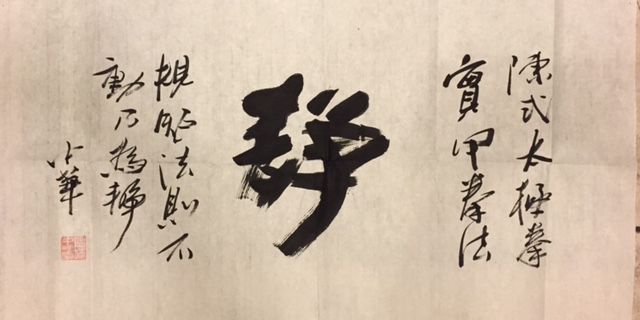 陳式太極拳
實甲拳法
靜
規法則不
動乃為靜
華